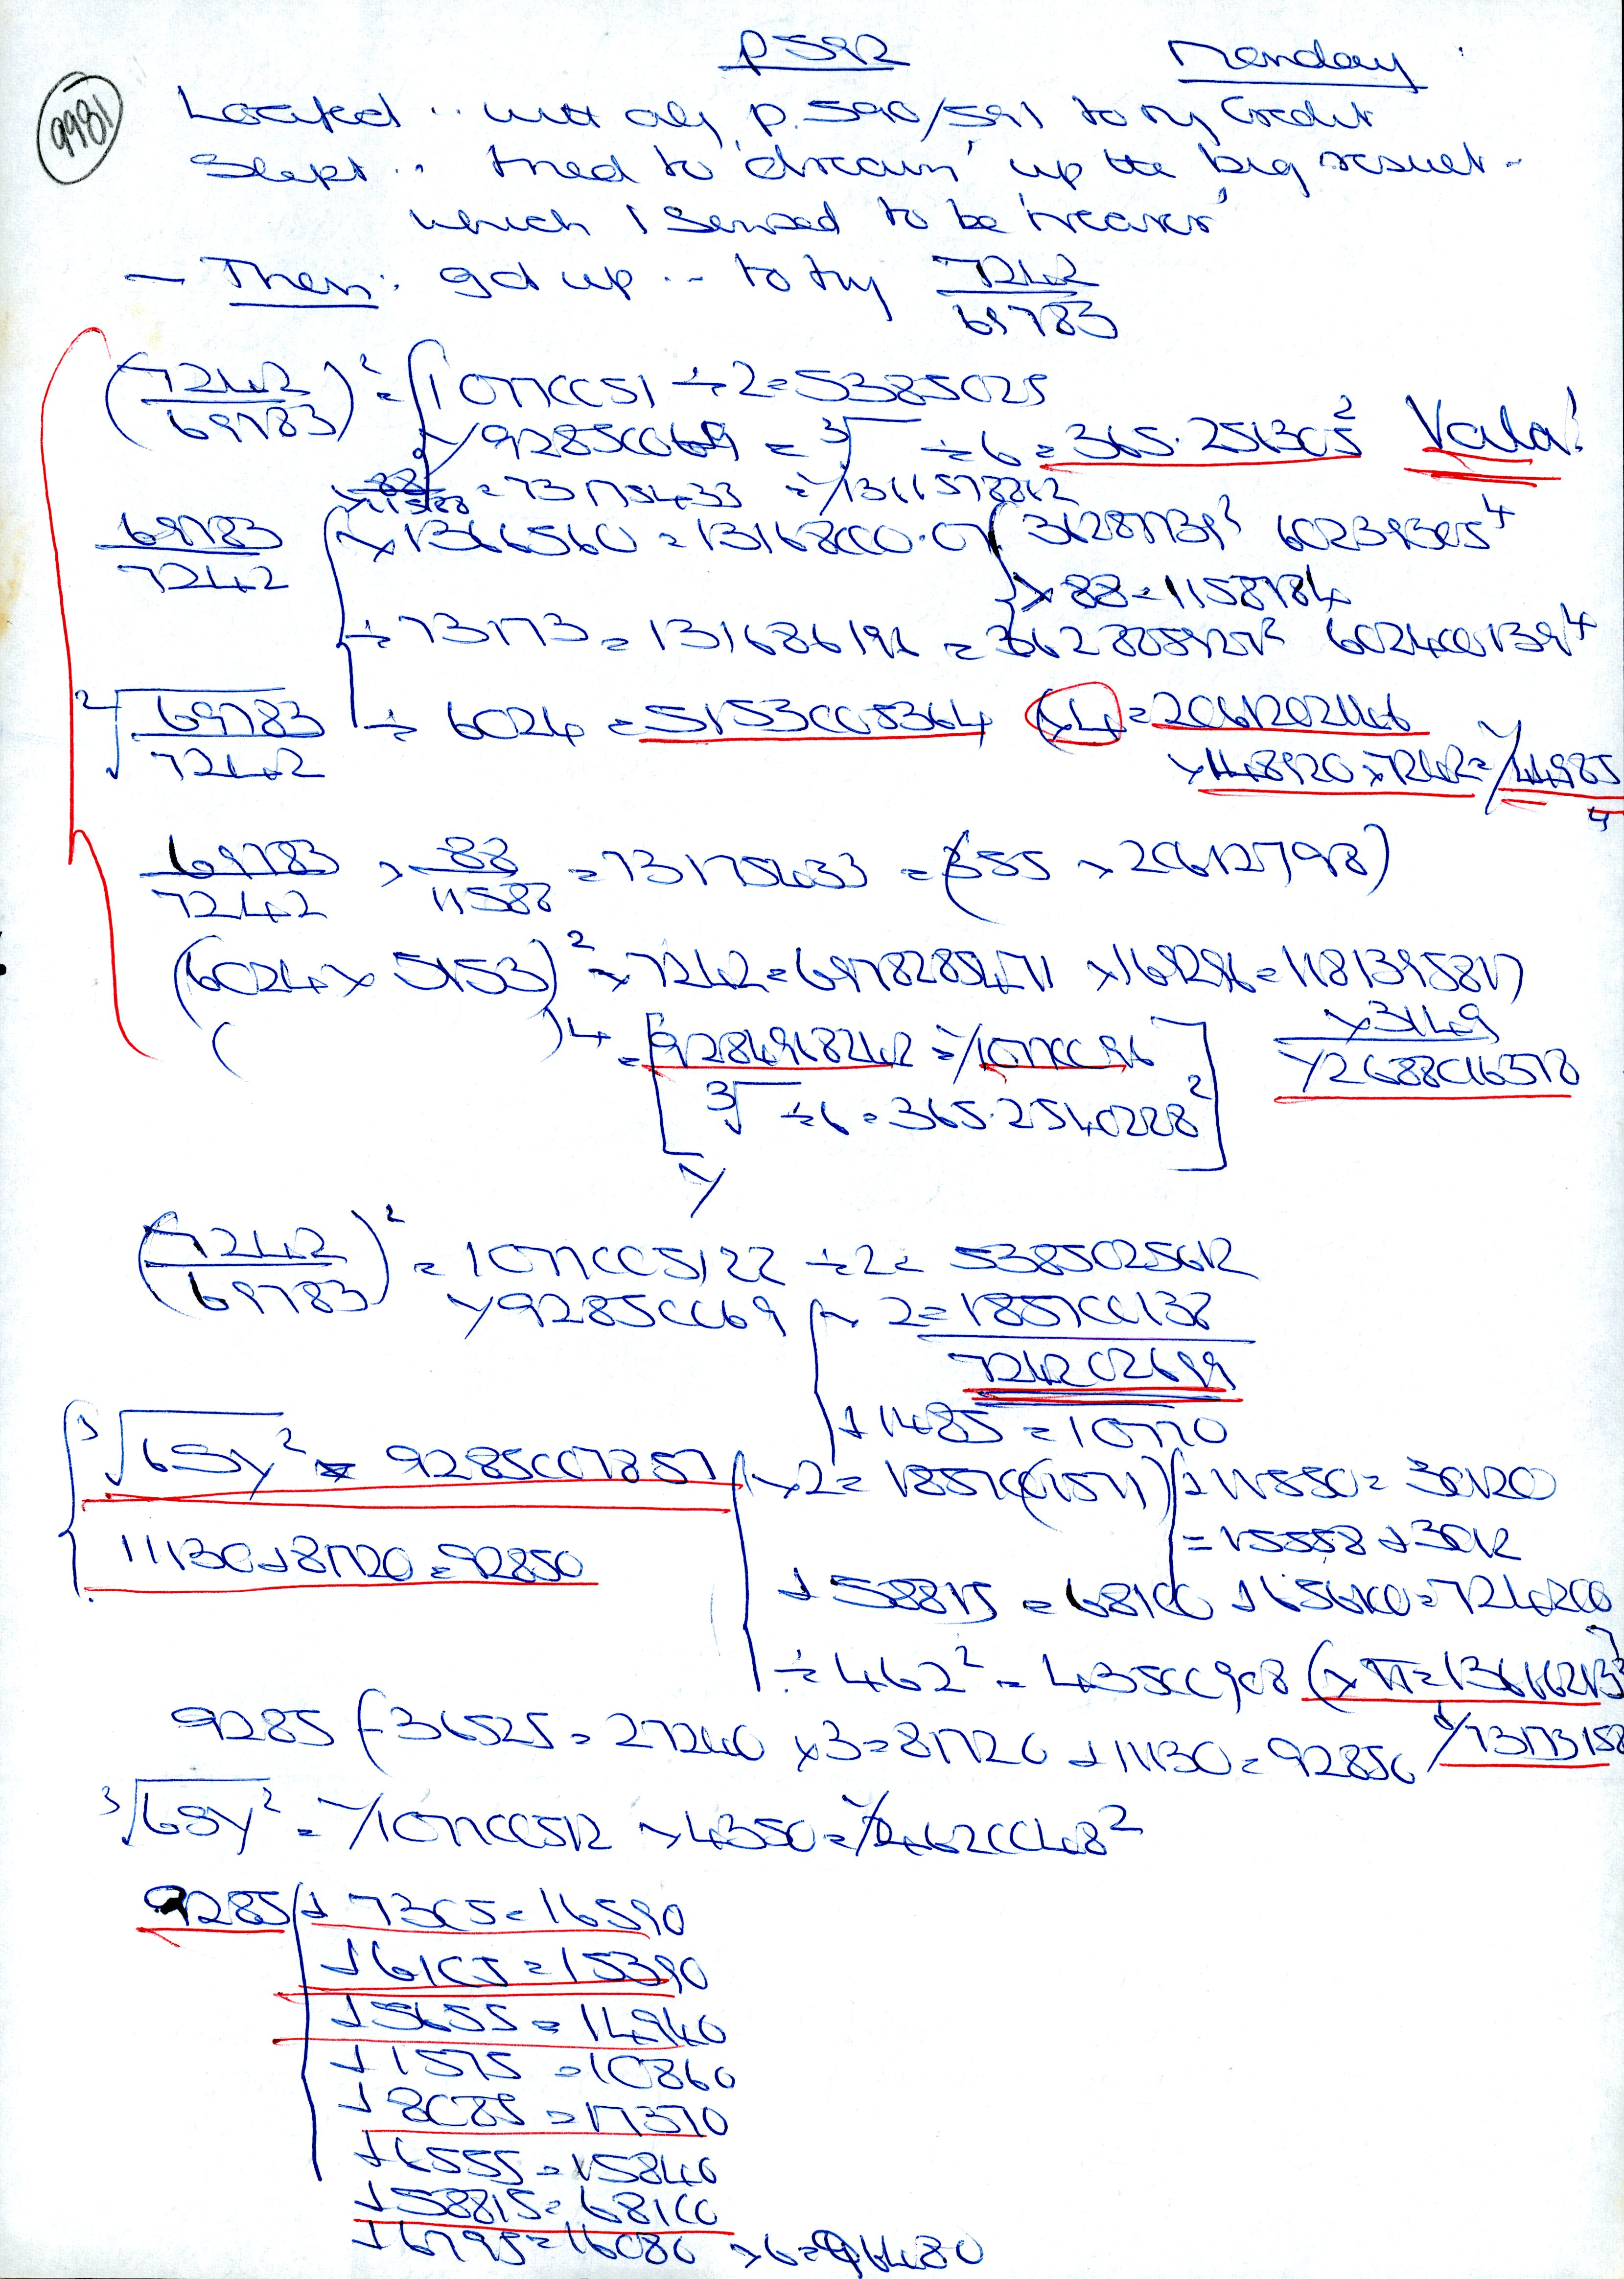 p 592 Monday
9981
Looked .. with only p. 590/591 to my Credit
Slept .. tried to 'dream' up the big result -
which I sensed to be 'nearer'
- Then: got up ... to try 7242/69783
(7242/69783)² = 107700051 ÷ 2 = 5385025
y 92850069 = ³√ ÷ 6 = 365.251305² Voila!
= 73175433 = y/1311578812
69783/7242 × 1366560 = 13168000.07 36287739² 60239305⁴
× 88 = 1158784
÷ 73173 = 131686196 = 36280592² 602400139⁴
²√69783/7242 ÷ 6024 = 5153005364 (×4) = 2061202146
× 148920 × 7242 = y/44985
4
69783/7242 × 88/11588 = 73175433 = (355 × 20612798)
(6024 × 5153)² × 7242 = 6978285471 × 169296 = 1181395817
( )⁴ = [9284968242 = y/10770096 × 3149
³√ ÷ 6 = 365.2540228²] y2688016578
y
(7242/69783)² = 1077005122 ÷ 2 = 5385025612
y 92850069 × 2 = 185700138
724202699
+ 1485 = 10770
³√6Sy² = 9285007857 × 2 = 18570(01571) + 11550 = 30120
= 15558 + 3012
11130 + 81720 = 92850
+ 58815 = 68100 + 656100 = 724200
÷ 462² = 43500908 (× π = 136662133
9285 (- 36525 = 27240 × 3 = 81720 + 11130 = 92850 y/73173158
³√6Sy² = y/107700512 × 4350 = y/46200048²
9285 + 7305 = 16590
+ 6105 = 15390
+ 5655 = 14940
+ 1575 = 10860
+ 8085 = 17370
+ 6555 = 15840
+ 58815 = 68100
+ 6795 = 16080 × 6 = 96480